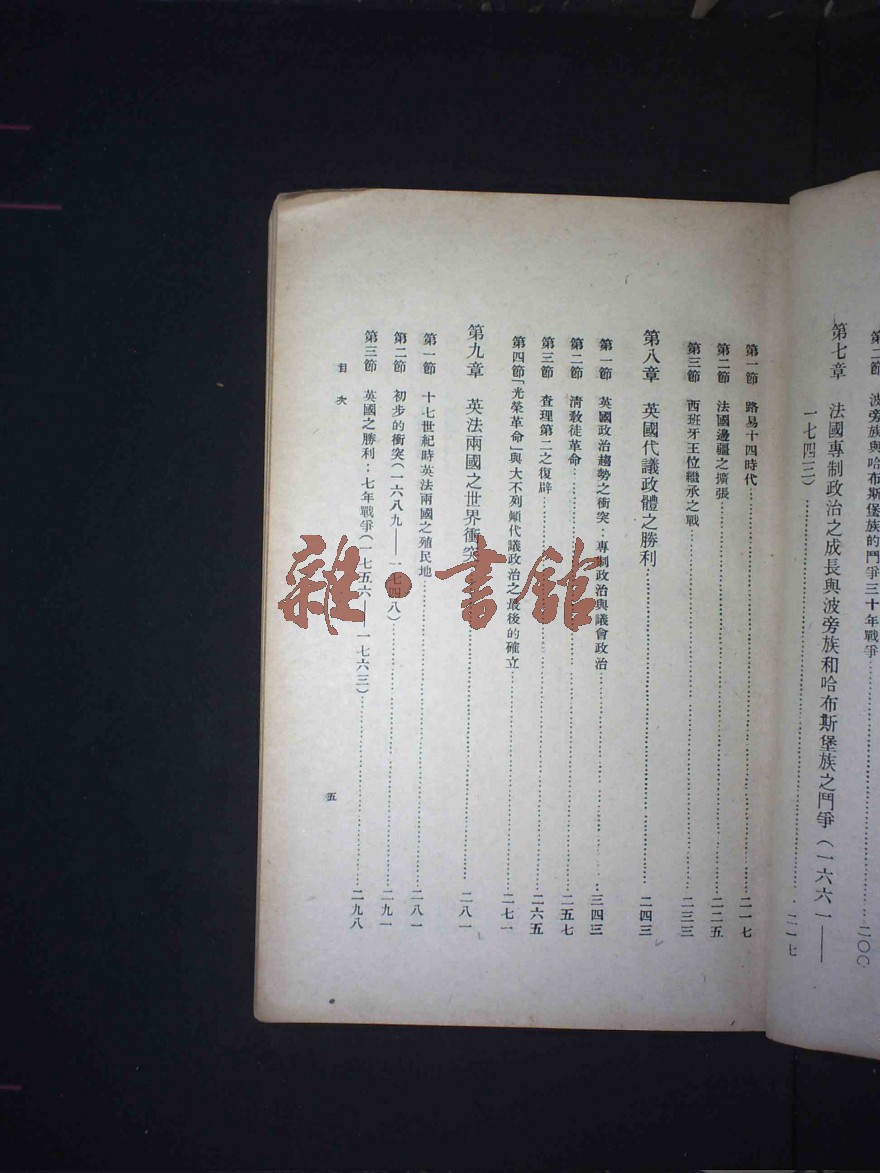 第二節 波旁族與哈布斯堡族的鬥爭三十年戰爭……二〇〇
第七章 法國專制政治之成長與波旁族和哈布斯堡族之鬥爭（一六六一——
一七四三）……二一七
第一節 路易十四時代……二一七
第二節 法國邊疆之擴張……二二五
第三節 西班牙王位繼承之戰……二三三
第八章 英國代議政體之勝利……二四三
第一節 英國政治趨勢之衝突：專制政治與議會政治……三四三
第二節 清敎徒革命……二五七
第三節 查理第二之復辟……二六五
第四節「光榮革命」與大不列顚代議政治之最後的確立……二七一
第九章 英法兩國之世界衝突……二八一
第一節 十七世紀時英法兩國之殖民地……二八一
第二節 初步的衝突（一六八九——一七四八）……二九一
第三節 英國之勝利：七年戰爭（一七五六——一七六三）……二九八
目次
五
雜·書館